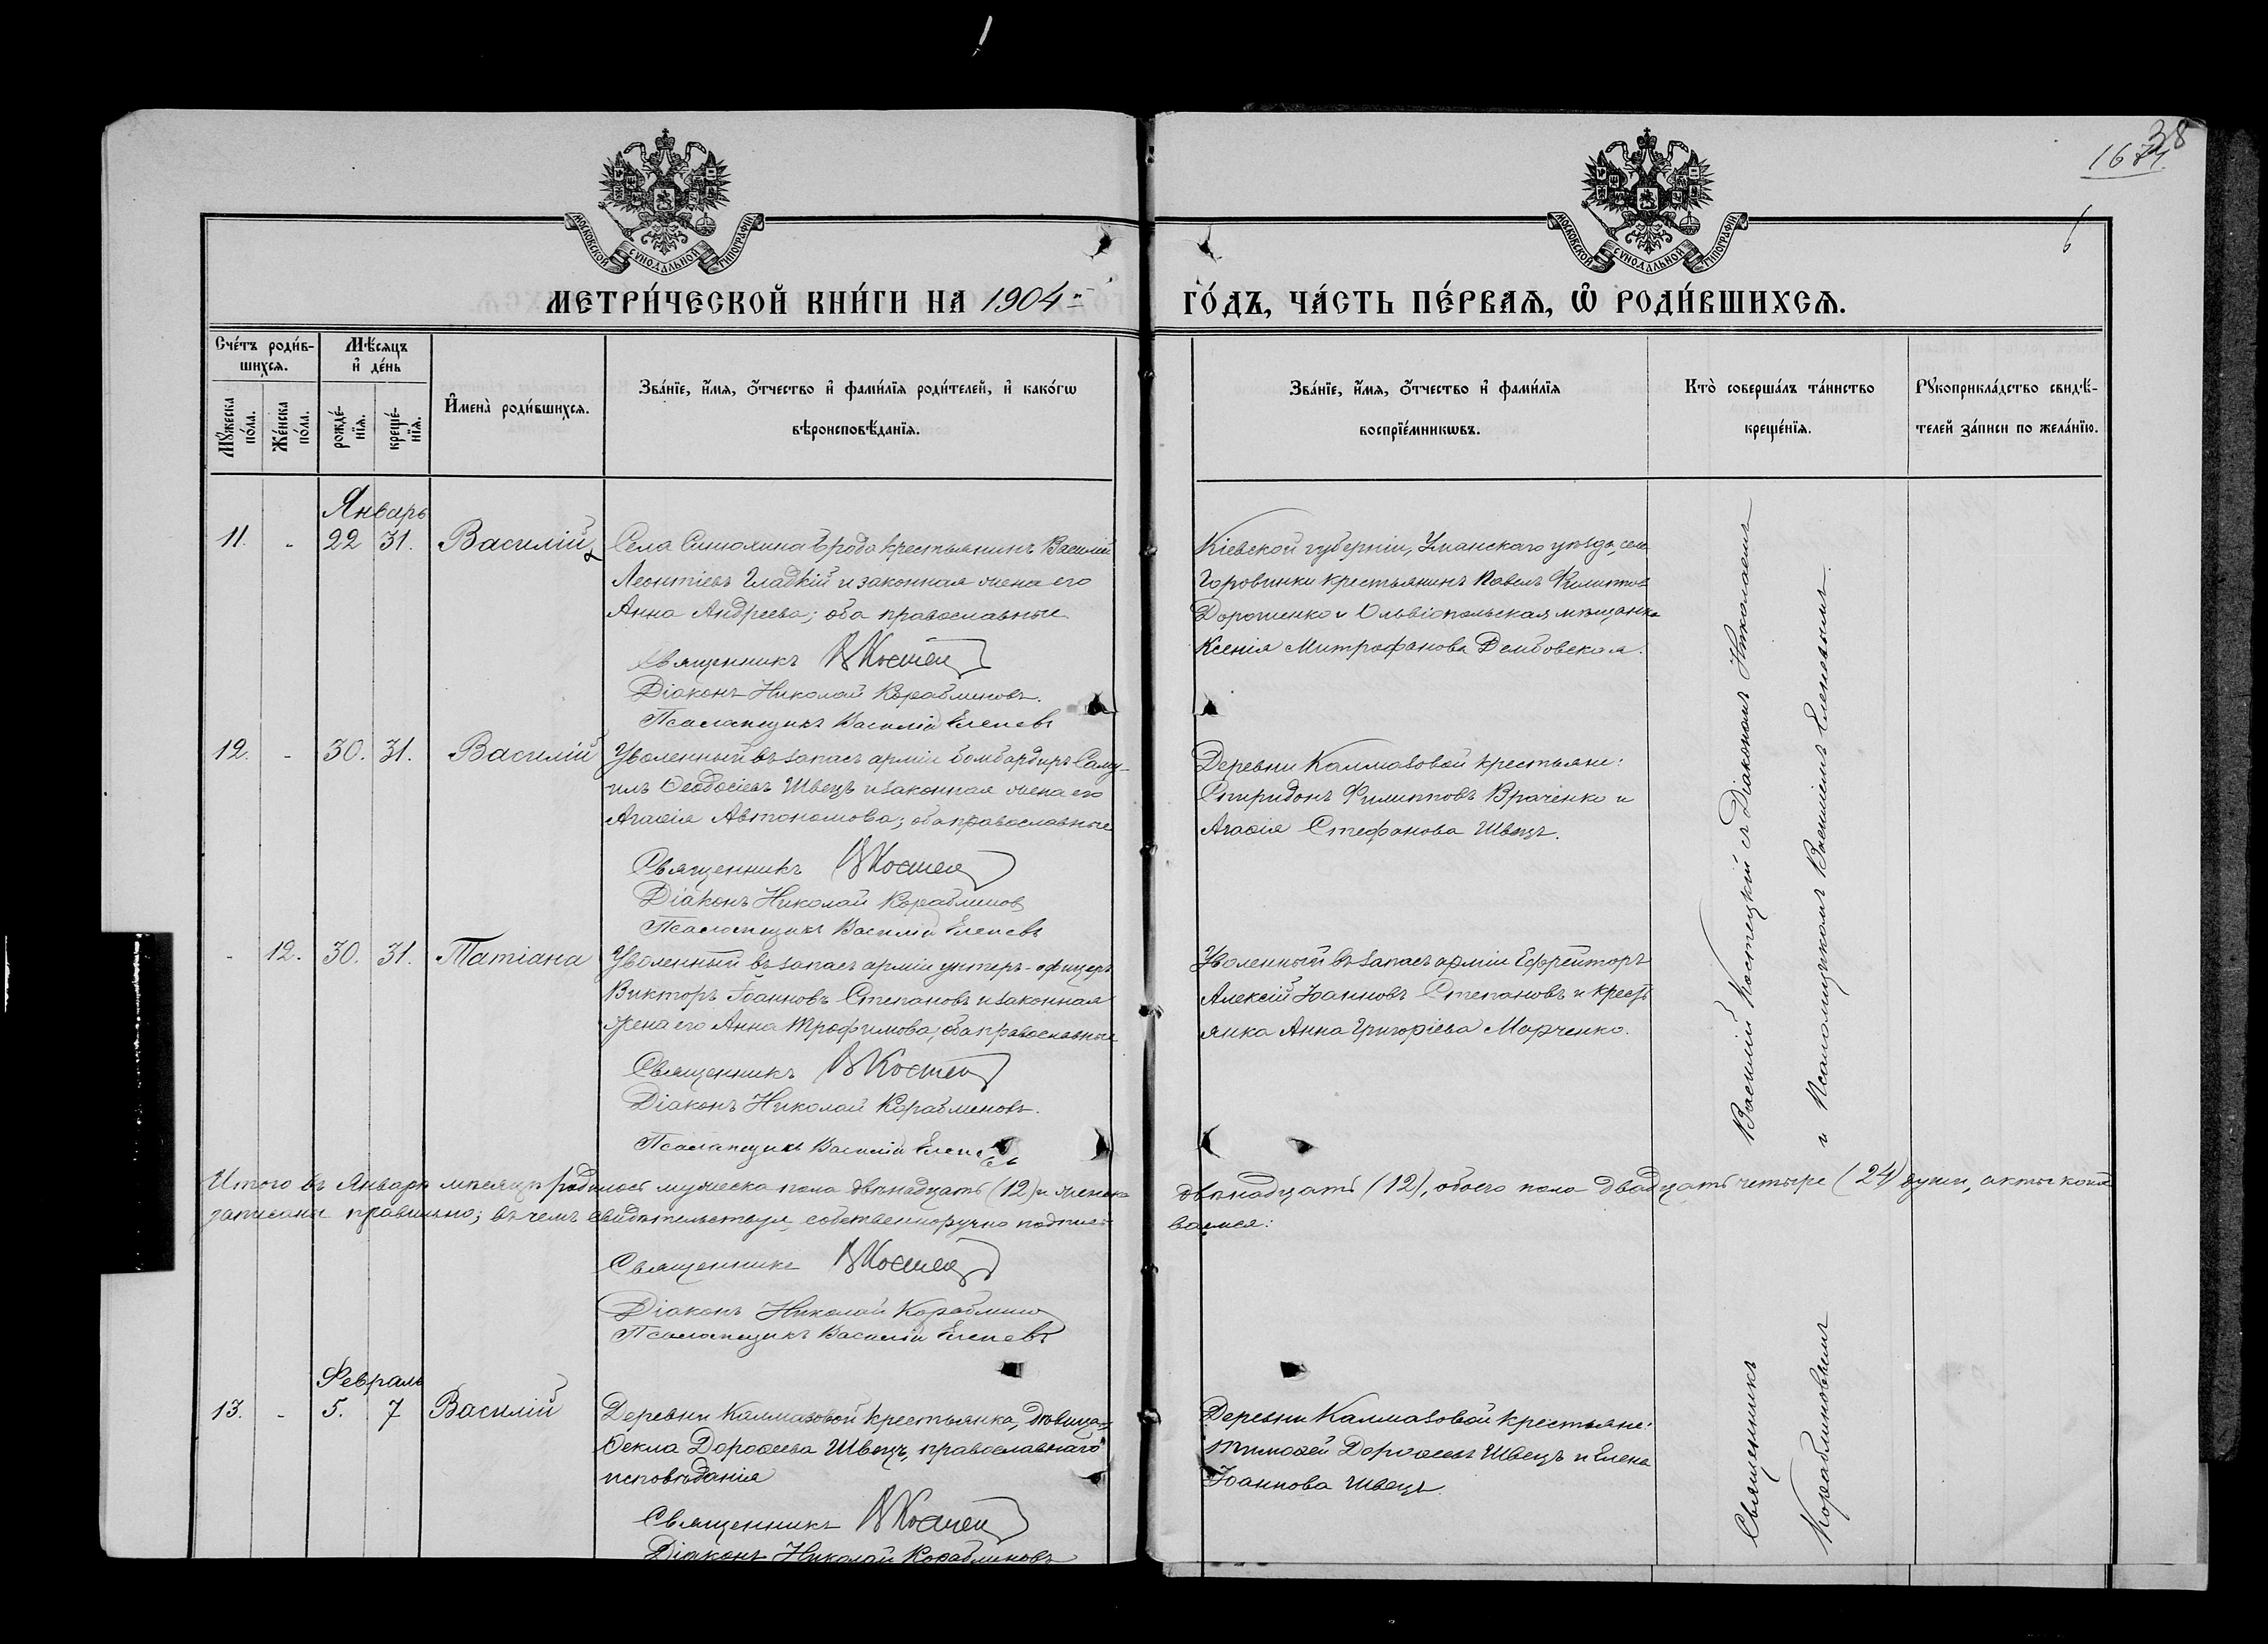 38
1674
6
МОСКОВСКОЙ СУНОДАЛЬНОЙ ТИПОГРАФІИ
МОСКОВСКОЙ СУНОДАЛЬНОЙ ТИПОГРАФІИ
МЕТРИ́ЧЕСКОЙ КНИ́ГИ НА 1904
ГО́ДЪ, ЧА́СТЬ ПЕ́РВАѦ, Ѡ҆ РОДИ́ВШИХСѦ.
Сче́тъ роди́в-
шихсѧ.
Мѹ́жеска по́ла.
Же́нска по́ла.
Мѣ́сѧцъ
и҆ де́нь
рожде́-
нїѧ.
креще́-
нїѧ.
И҆мена̀ роди́вшихсѧ.
Зва́нїе, и҆́мѧ, ѻ҆́тчество и҆ фами́лїѧ роди́телей, и҆ како́гѡ
вѣроисповѣ́данїѧ.
Зва́нїе, и҆́мѧ, ѻ҆́тчество и҆ фами́лїѧ
воспрїе́мникѡвъ.
Кто̀ соверша́лъ та́инство
креще́нїѧ.
Рꙋкоприкла́дство свидѣ́-
телей за́писи по жела́нїю.
Январь
11. - 22 31. Василій
Села Синюхина брода крестьянинъ Василій
Леонтіевъ Гладкій и законная жена его
Анна Андреева; оба православные
Священникъ В Костец
Діаконъ Николай Кораблиновъ.
Псаломщикъ Василій Еленевъ
Кіевской губерніи, Уманскаго уѣзда, села
крестьянинъ Павелъ Филиппов
Дорошенко и Ольвіопольская мѣщанка
Ксенія Митрофанова Дембовская.
12. - 30. 31. Василій
Уволенный въ запасъ арміи бомбардиръ Саму-
илъ Ѳеодосіевъ Швецъ и законная жена его
Агаѳія Автономова; оба православные
Священникъ В Костец
Діаконъ Николай Кораблинов
Псаломщикъ Василій Еленевъ
Деревни Калмазовой крестьяне:
Спиридонъ Филипповъ Враченко и
Агаѳія Стефанова Швецъ.
- 12. 30. 31. Татіана
Уволенный въ запасъ арміи унтеръ-офицеръ
Викторъ Іоанновъ Степановъ и законная
жена его Анна Трофимова; оба православные
Священникъ В Костец
Діаконъ Николай Кораблиновъ.
Псаломщикъ Василій Еленевъ
Уволенный въ запасъ арміи Ефрейторъ
Алексій Іоанновъ Степановъ и крестъ
янка Анна Григоріева Марченко.
Василій Костецкій съ Діакономъ Николаемъ
и Псаломщикомъ Василіемъ Еленевымъ.
Итого въ Январѣ мѣсяцѣ родилось мужеска пола двѣнадцать (12) и женска
двѣнадцать (12), обоего пола двадцать четыре (24) души, акты коихъ
записаны правильно; въ чемъ свидѣтельствуя, собственноручно подписы-
ваемся:
Священникъ В Костец
Діаконъ Николай Кораблинов
Псаломщикъ Василій Еленевъ
Февраль
13. - 5. 7 Василій
Деревни Калмазовой крестьянка, дѣвица
Ѳекла Дороѳеева Швецъ, православнаго
исповѣданія
Священникъ В Костец
Діаконъ Николай Кораблиновъ
Деревни Калмазовой крестьяне:
Тимоѳей Дороѳеевъ Швецъ и Елена
Іоаннова Швецъ.
Священникъ
Кораблиновымъ